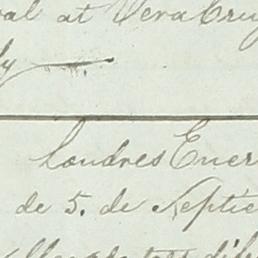 val at Vera Cruz
ly
Londres Ener
de 5. de Septie